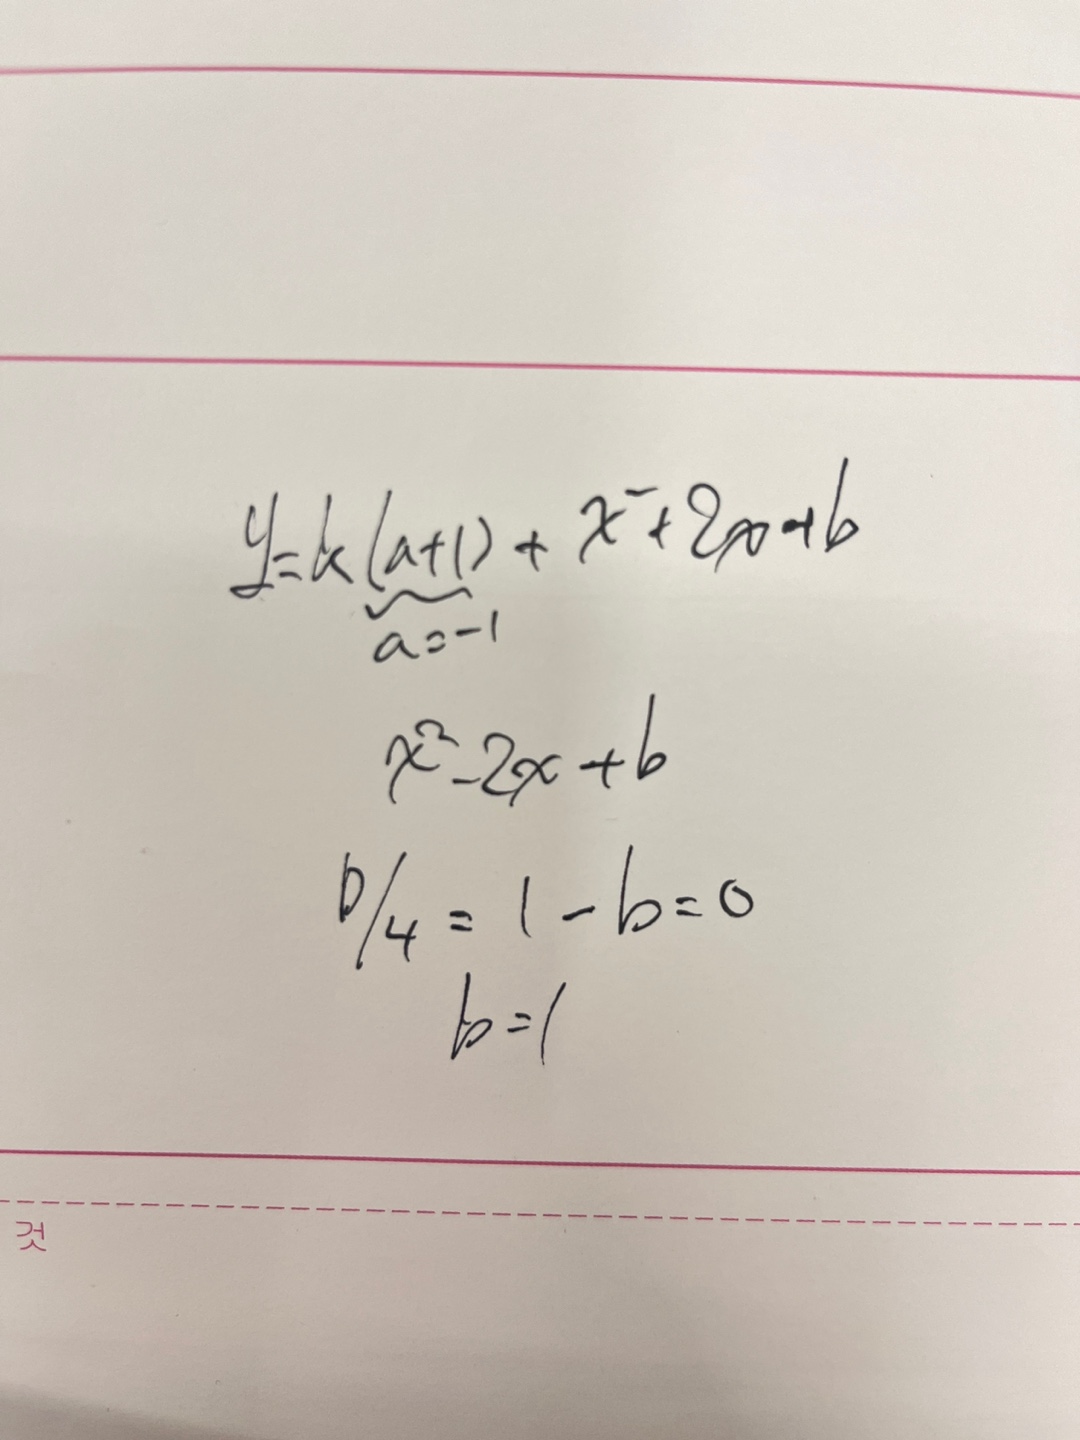 y=k(a+1)+x²+2x+b
a=-1
x²-2x+b
D/4=1-b=0
b=1
것